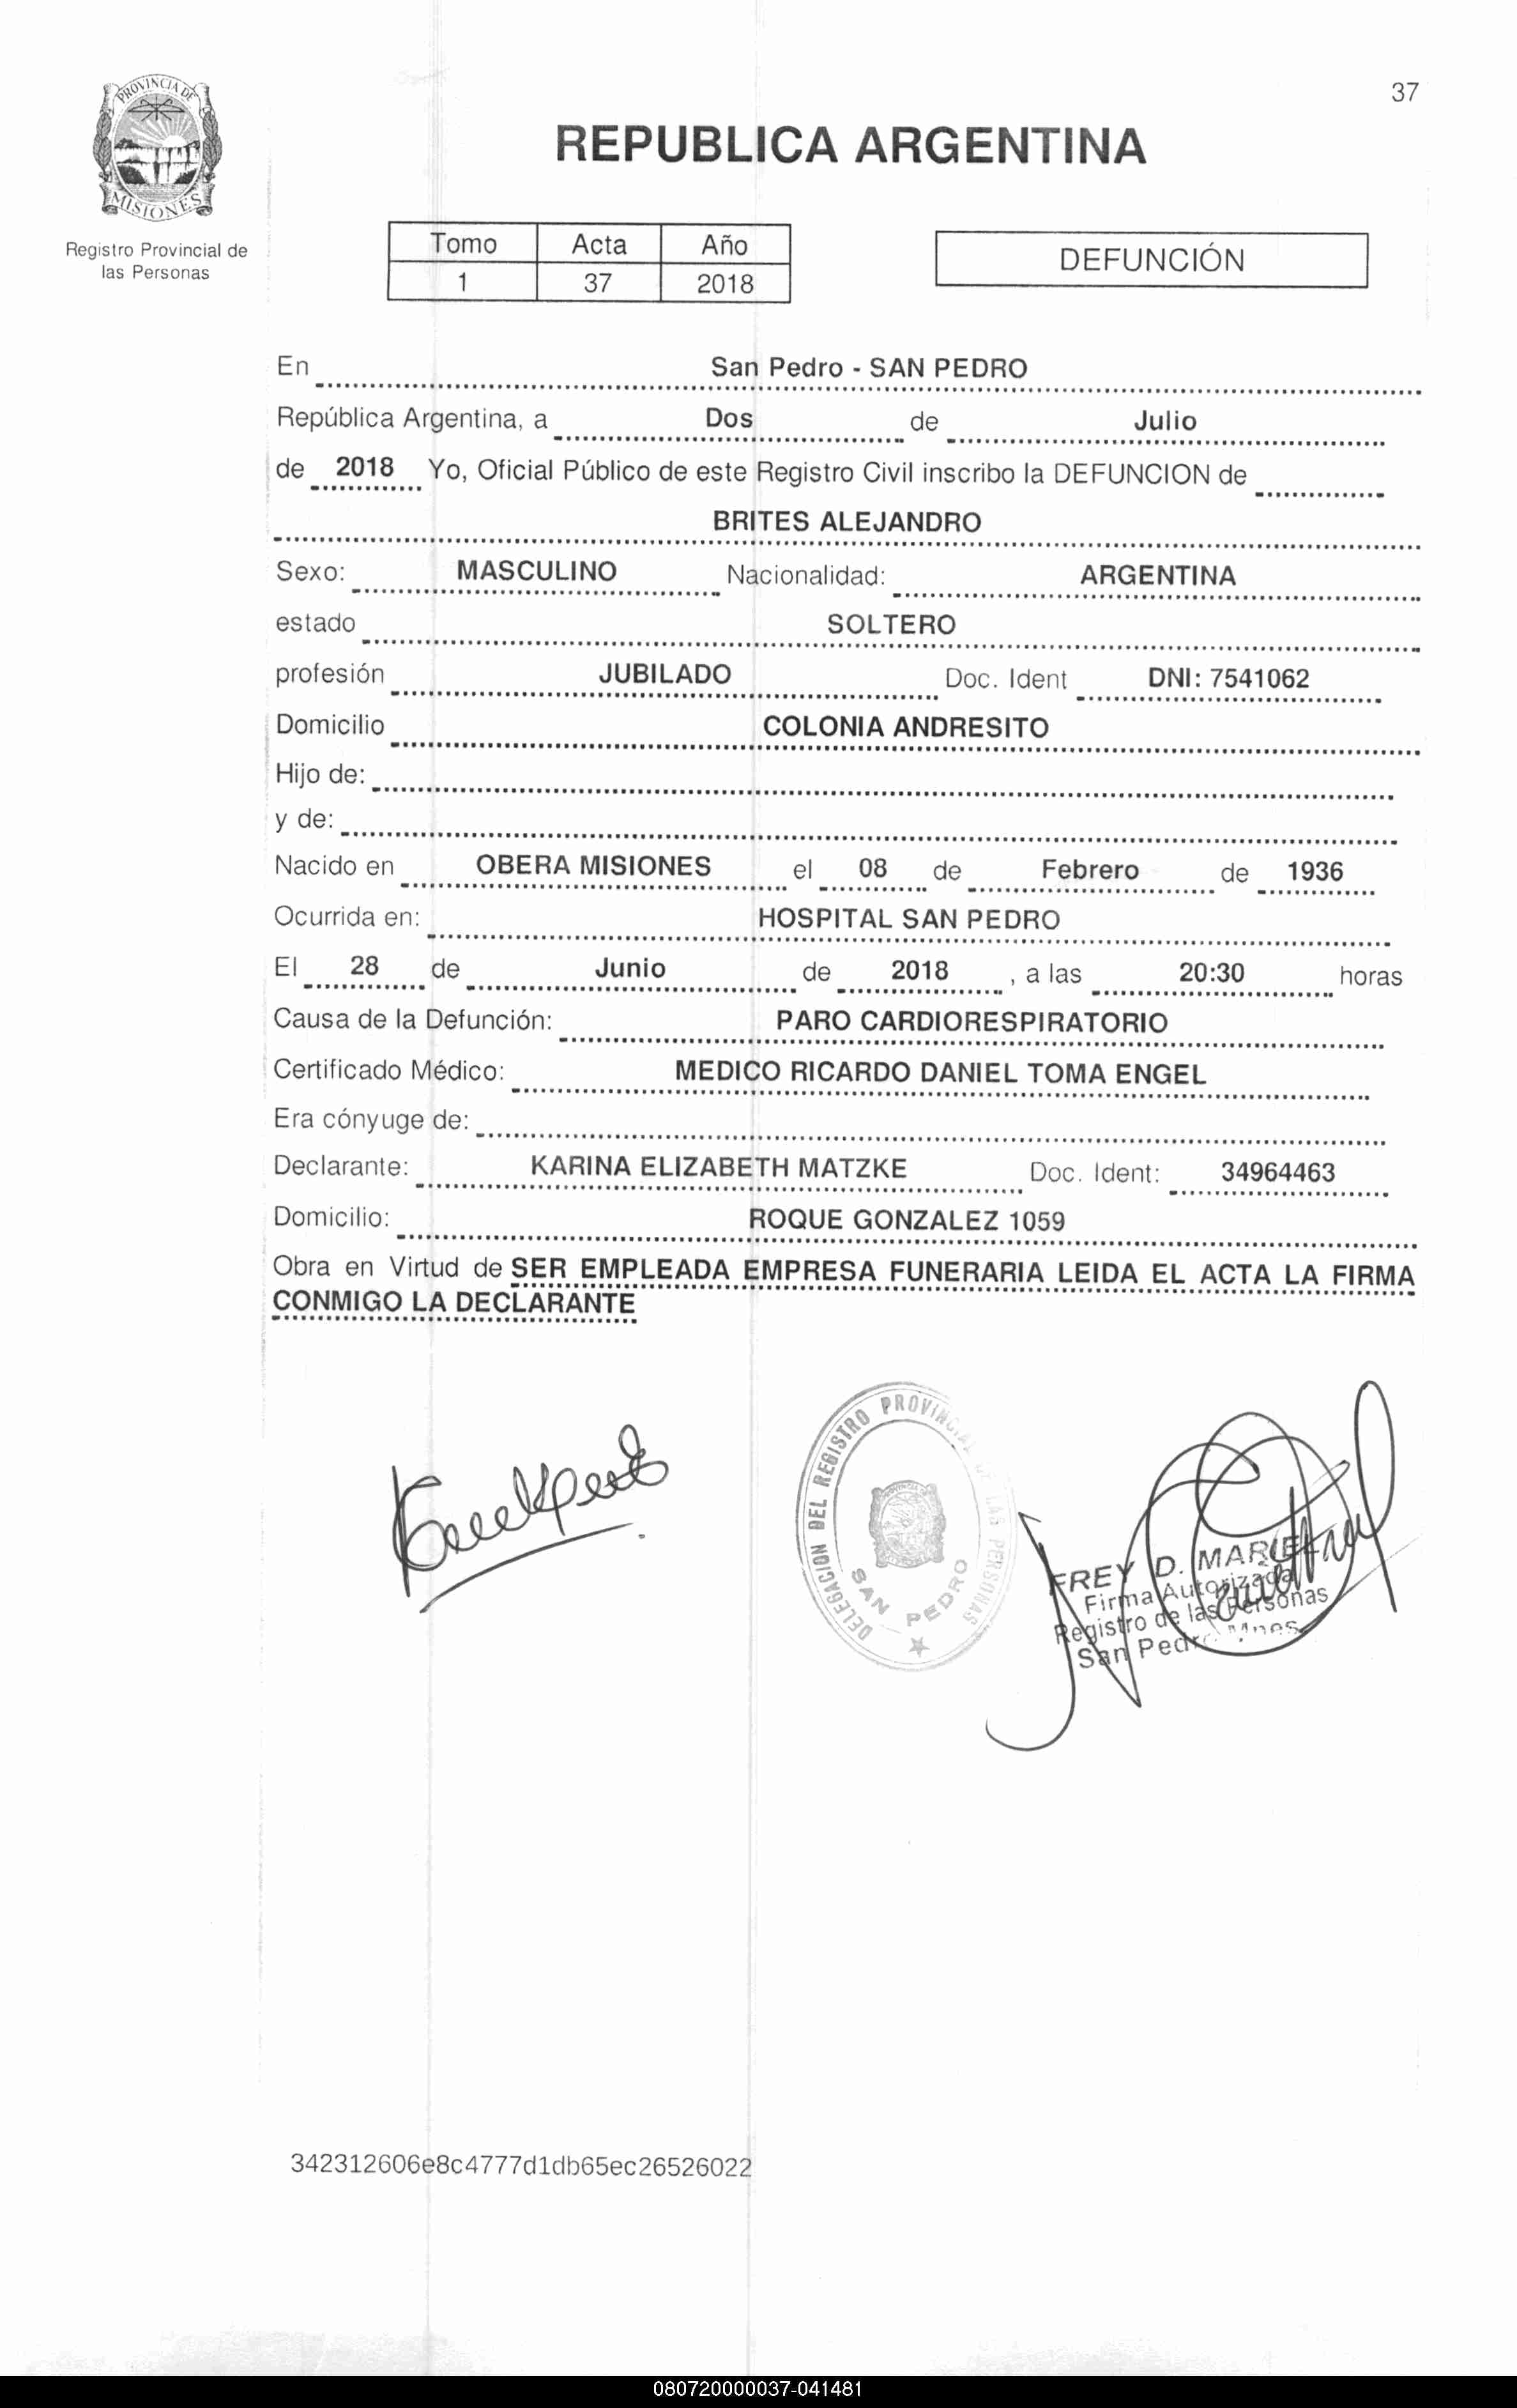 37
PROVINCIA DE
MISIONES
REPUBLICA ARGENTINA
Registro Provincial de
las Personas
Tomo Acta Año
1 37 2018
DEFUNCIÓN
En San Pedro - SAN PEDRO
República Argentina, a Dos de Julio
de 2018 Yo, Oficial Público de este Registro Civil inscribo la DEFUNCION de
BRITES ALEJANDRO
Sexo: MASCULINO Nacionalidad: ARGENTINA
estado SOLTERO
profesión JUBILADO Doc. Ident DNI: 7541062
Domicilio COLONIA ANDRESITO
Hijo de:
y de:
Nacido en OBERA MISIONES el 08 de Febrero de 1936
Ocurrida en: HOSPITAL SAN PEDRO
El 28 de Junio de 2018 , a las 20:30 horas
Causa de la Defunción: PARO CARDIORESPIRATORIO
Certificado Médico: MEDICO RICARDO DANIEL TOMA ENGEL
Era cónyuge de:
Declarante: KARINA ELIZABETH MATZKE Doc. Ident: 34964463
Domicilio: ROQUE GONZALEZ 1059
Obra en Virtud de SER EMPLEADA EMPRESA FUNERARIA LEIDA EL ACTA LA FIRMA
CONMIGO LA DECLARANTE
DELEGACION DEL REGISTRO PROVINCIAL DE LAS PERSONAS
SAN PEDRO
FREY D. MARIELA
Firma Autorizada
Registro de las Personas
San Pedro Mnes
342312606e8c4777d1db65ec26526022
080720000037-041481